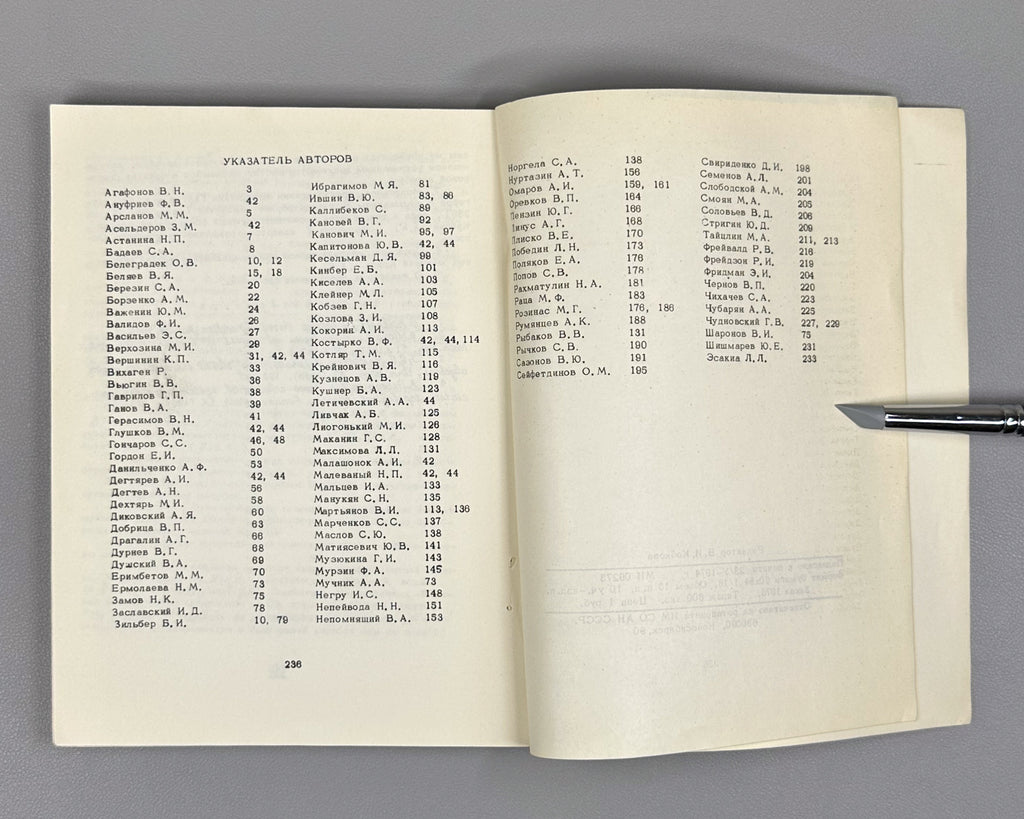 УКАЗАТЕЛЬ АВТОРОВ
Агафонов В. Н. 3
Ануфриев Ф. В. 42
Арсланов М. М. 5
Асельдеров З. М. 42
Астанина Н. П. 7
Бадаев С. А. 8
Белеградек О. В. 10, 12
Беляев В. Я. 15, 18
Березин С. А. 20
Борзенко А. М. 22
Важенин Ю. М. 24
Валидов Ф. И. 26
Васильев Э. С. 27
Верхозина М. И. 29
Вершинин К. П. 31, 42, 44
Вихаген Р. 33
Вьюгин В. В. 36
Гаврилов Г. П. 38
Ганов В. А. 39
Герасимов В. Н. 41
Глушков В. М. 42, 44
Гончаров С. С. 46, 48
Гордон Е. И. 50
Данильченко А. Ф. 53
Дегтярев А. И. 42, 44
Дегтев А. Н. 56
Дехтярь М. И. 58
Диковский А. Я. 60
Добрица В. П. 63
Драгалин А. Г. 66
Дуриев В. Г. 68
Душский В. А. 69
Еримбетов М. М. 70
Ермолаева Н. М. 73
Замов Н. К. 75
Заславский И. Д. 78
Зильбер Б. И. 10, 79
Ибрагимов М. Я. 81
Ившин В. Ю. 83, 86
Каллибеков С. 89
Кановей В. Г. 92
Канович М. И. 95, 97
Капитонова Ю. В. 42, 44
Кесельман Д. Я. 99
Кинбер Е. Б. 101
Киселев А. А. 103
Клейнер М. Л. 105
Кобзев Г. Н. 107
Козлова З. И. 108
Кокорин А. И. 113
Костырко В. Ф. 42, 44, 114
Котляр Т. М. 115
Крейнович В. Я. 116
Кузнецов А. В. 119
Кушнер Б. А. 123
Летичевский А. А. 44
Ливчак А. Б. 125
Лиогонький М. И. 126
Маканин Г. С. 128
Максимова Л. Л. 131
Малашонок А. И. 42
Малеваный Н. П. 42, 44
Мальцев И. А. 133
Манукян С. Н. 135
Мартьянов В. И. 113, 136
Марченков С. С. 137
Маслов С. Ю. 138
Матиясевич Ю. В. 141
Музюкина Г. И. 143
Мурзин Ф. А. 145
Мучник А. А. 73
Негру И. С. 148
Непейвода Н. Н. 151
Непомнящий В. А. 153
236
Норгела С. А. 138
Нуртазин А. Т. 156
Омаров А. И. 159, 161
Оревков В. П. 164
Пензин Ю. Г. 166
Пинус А. Г. 168
Плиско В. Е. 170
Победин Л. Н. 173
Поляков Е. А. 176
Попов С. В. 178
Рахматулин Н. А. 181
Раца М. Ф. 183
Розинас М. Г. 176, 186
Румянцев А. К. 188
Рыбаков В. В. 131
Рычков С. В. 190
Сазонов В. Ю. 191
Сейфетдинов О. М. 195
Свириденко Д. И. 198
Семенов А. Л. 201
Слободской А. М. 204
Смоян М. А. 205
Соловьев В. Д. 206
Стригин Ю. Д. 209
Тайцлин М. А. 211, 213
Фрейвалд Р. В. 216
Фрейдзон Р. И. 219
Фридман Э. И. 204
Чернов В. П. 220
Чихачев С. А. 223
Чубарян А. А. 225
Чудновский Г. В. 227, 229
Шаронов В. И. 75
Шишмарев Ю. Е. 231
Эсакиа Л. Л. 233